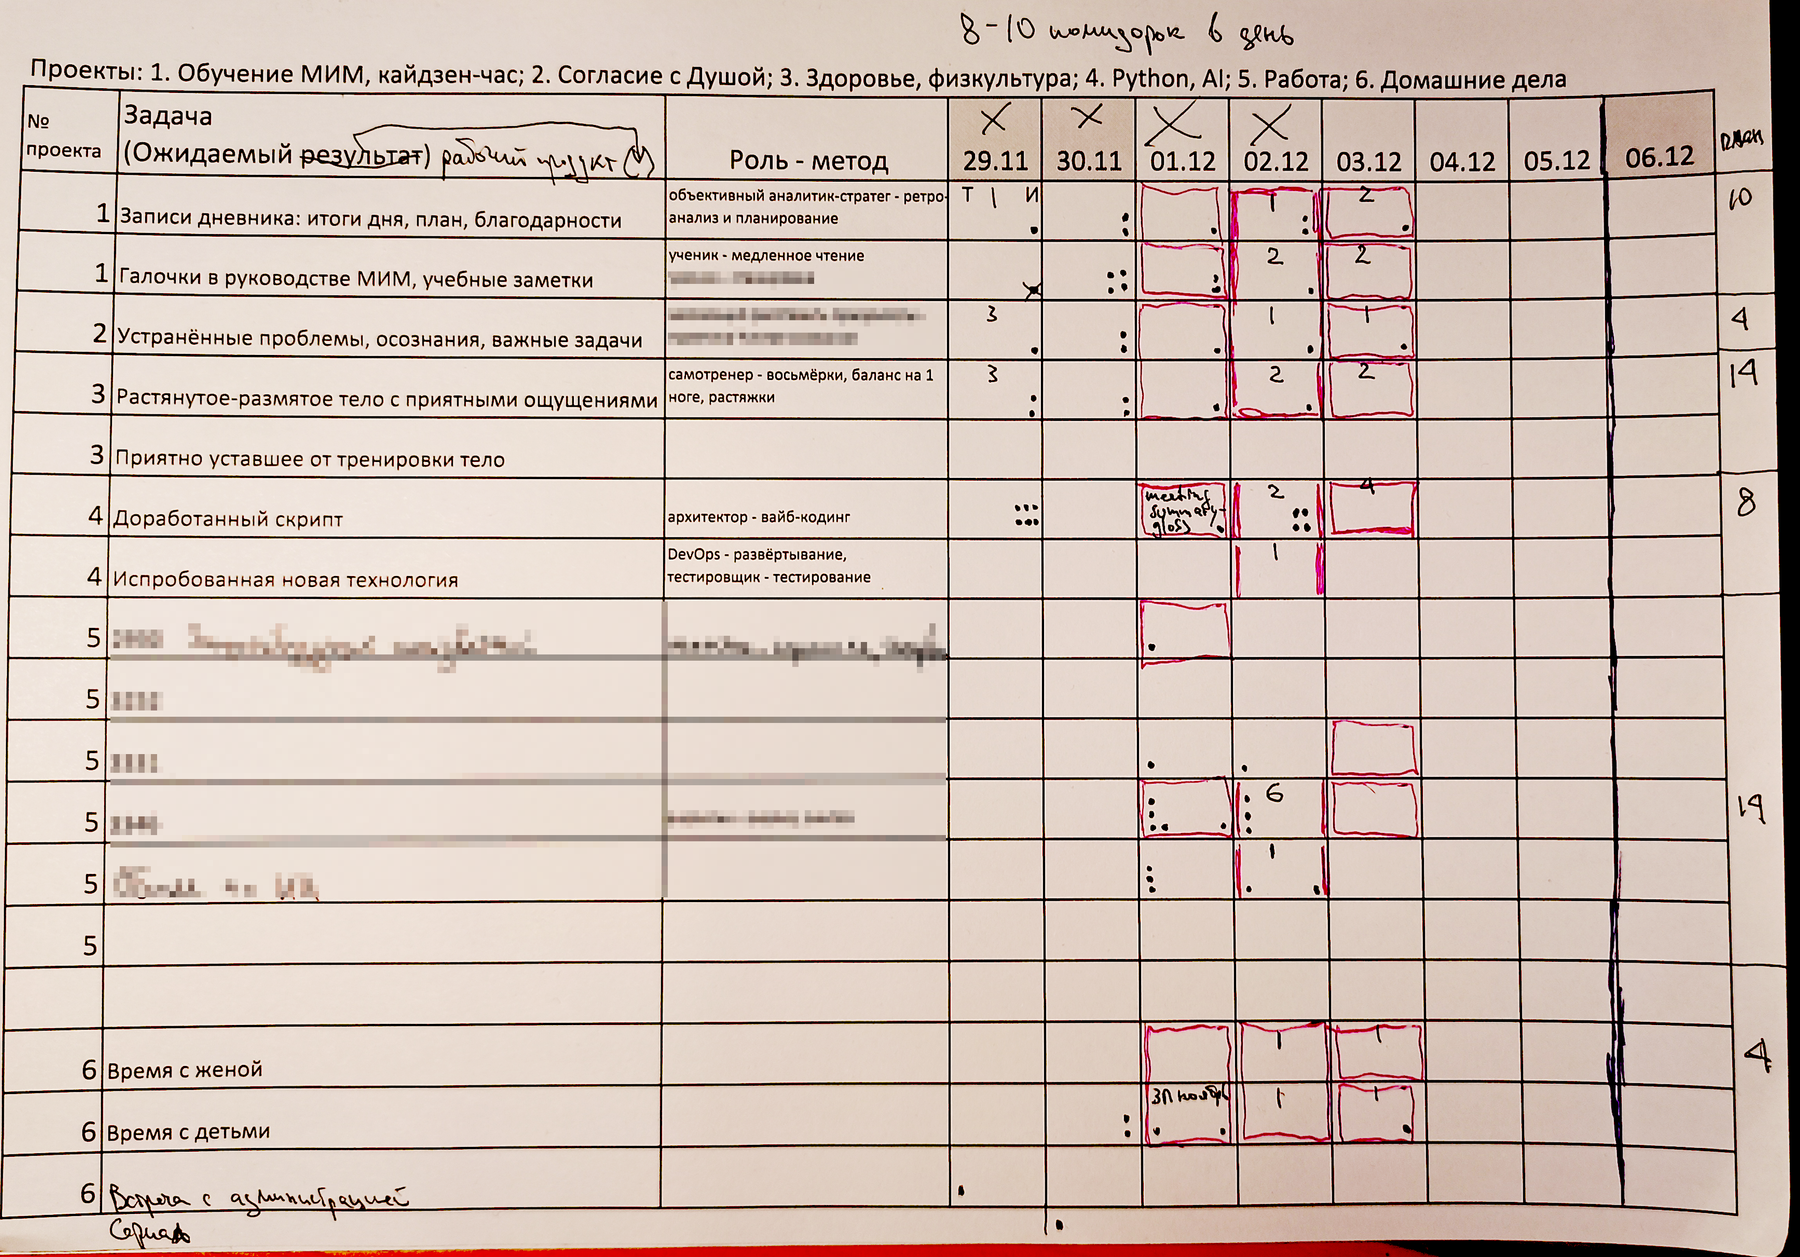 8-10 помидорок в день
Проекты: 1. Обучение МИМ, кайдзен-час; 2. Согласие с Душой; 3. Здоровье, физкультура; 4. Python, AI; 5. Работа; 6. Домашние дела
№ проекта
Задача
(Ожидаемый результат) рабочий продукт
Роль - метод
Х Х Х Х
29.11 30.11 01.12 02.12 03.12 04.12 05.12 06.12 план
1 Записи дневника: итоги дня, план, благодарности
объективный аналитик-стратег - ретро-
анализ и планирование
Т | И 1 2 10
1 Галочки в руководстве МИМ, учебные заметки
ученик - медленное чтение
2 2
2 Устранённые проблемы, осознания, важные задачи
3 1 1 4
3 Растянутое-размятое тело с приятными ощущениями
самотренер - восьмёрки, баланс на 1
ноге, растяжки
3 2 2 14
3 Приятно уставшее от тренировки тело
4 Доработанный скрипт
архитектор - вайб-кодинг
meeting
summary-
2 4 8
4 Испробованная новая технология
DevOps - развёртывание,
тестировщик - тестирование
1
5
5
5
5 6 14
5 1
5
6 Время с женой 1 1 4
6 Время с детьми ЗП ноябрь 1 1
6 Встреча с администрацией
Сериал